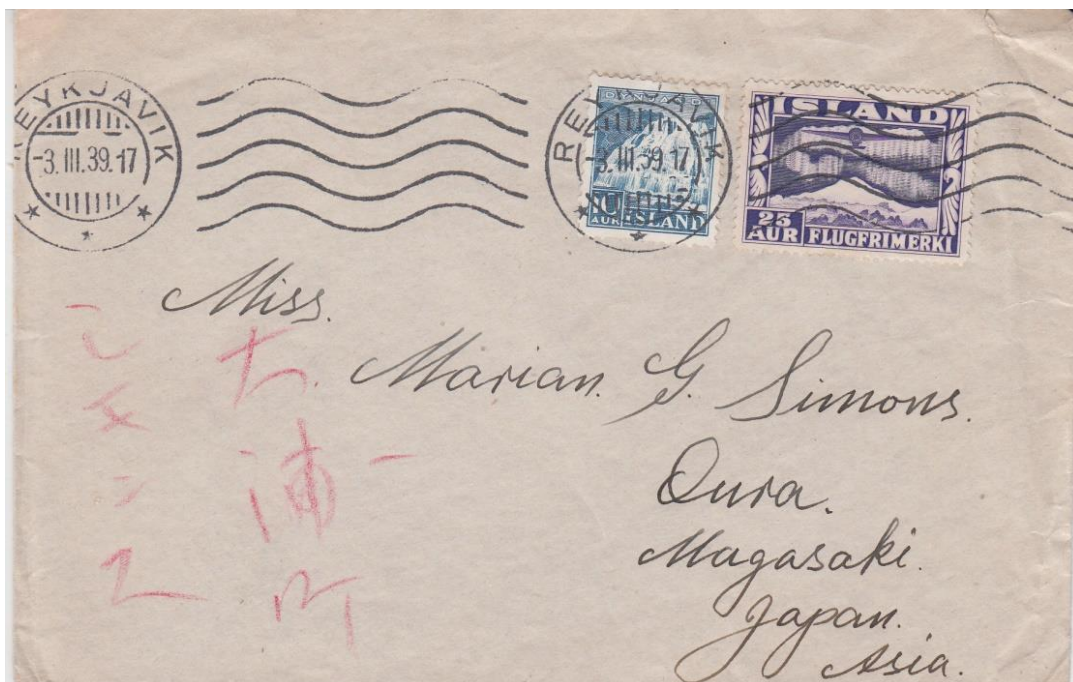 REYKJAVIK
-3.III.39.17
REYKJAVIK
-3.III.39.17
AUR ISLAND
ÍSLAND
25
AUR FLUGFRIMERKI
Miss.
Marian. G. Simons.
Oura.
Magasaki.
Japan.
Asia.
大浦町